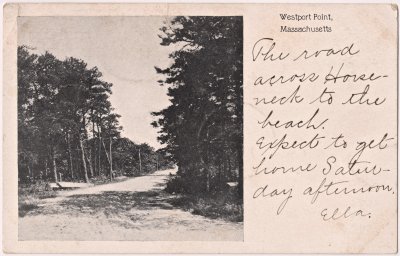 Westport Point,
Massachusetts
The road
across Horse-
neck to the
beach.
Expect to get
home Satur-
day afternoon.
Ella.